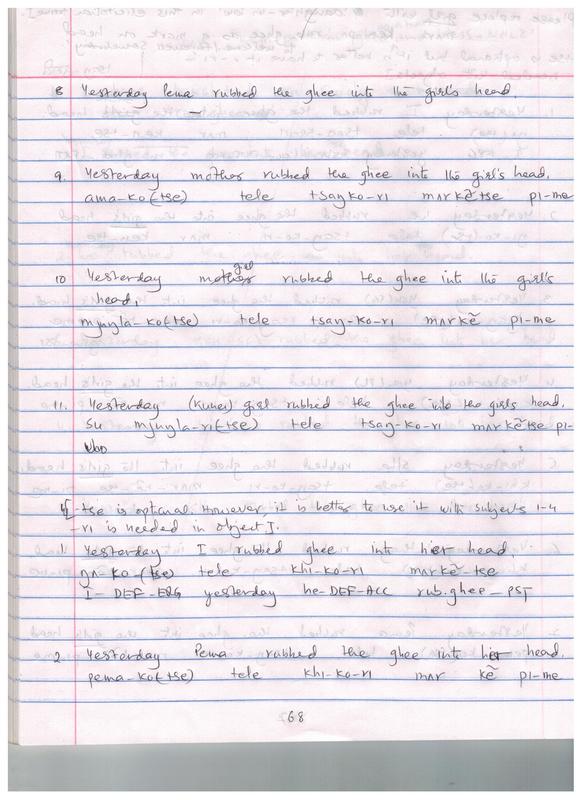 8 Yesterday Pema rubbed the ghee into the girl's head.
9. Yesterday mother rubbed the ghee into the girl's head.
ama-ko(tse) tele tsayko-ri mʌrkẽtse pi-me
10 Yesterday girl rubbed the ghee into the girl's
head,
ko(tse) tele tsay-ko-ri mʌrkẽ pi-me
11. Yesterday (Kunei) girl rubbed the ghee into the girls head.
su ri(tse) tele tsay-ko-ri mʌrkẽtse pi-
[-tse is optional. However, it is better to use it with subjects 1-4
-ri is needed in object].
1. Yesterday I rubbed ghee into her head
ŋʌ-ko-(tse) tele khi-ko-ri mʌrkẽ-tse
I- DEF-ERG yesterday he-DEF-ACC rub.ghee-PST
2 Yesterday Pema rubbed the ghee into her head.
pema-ko(tse) tele khi-ko-ri mʌr kẽ pi-me
68